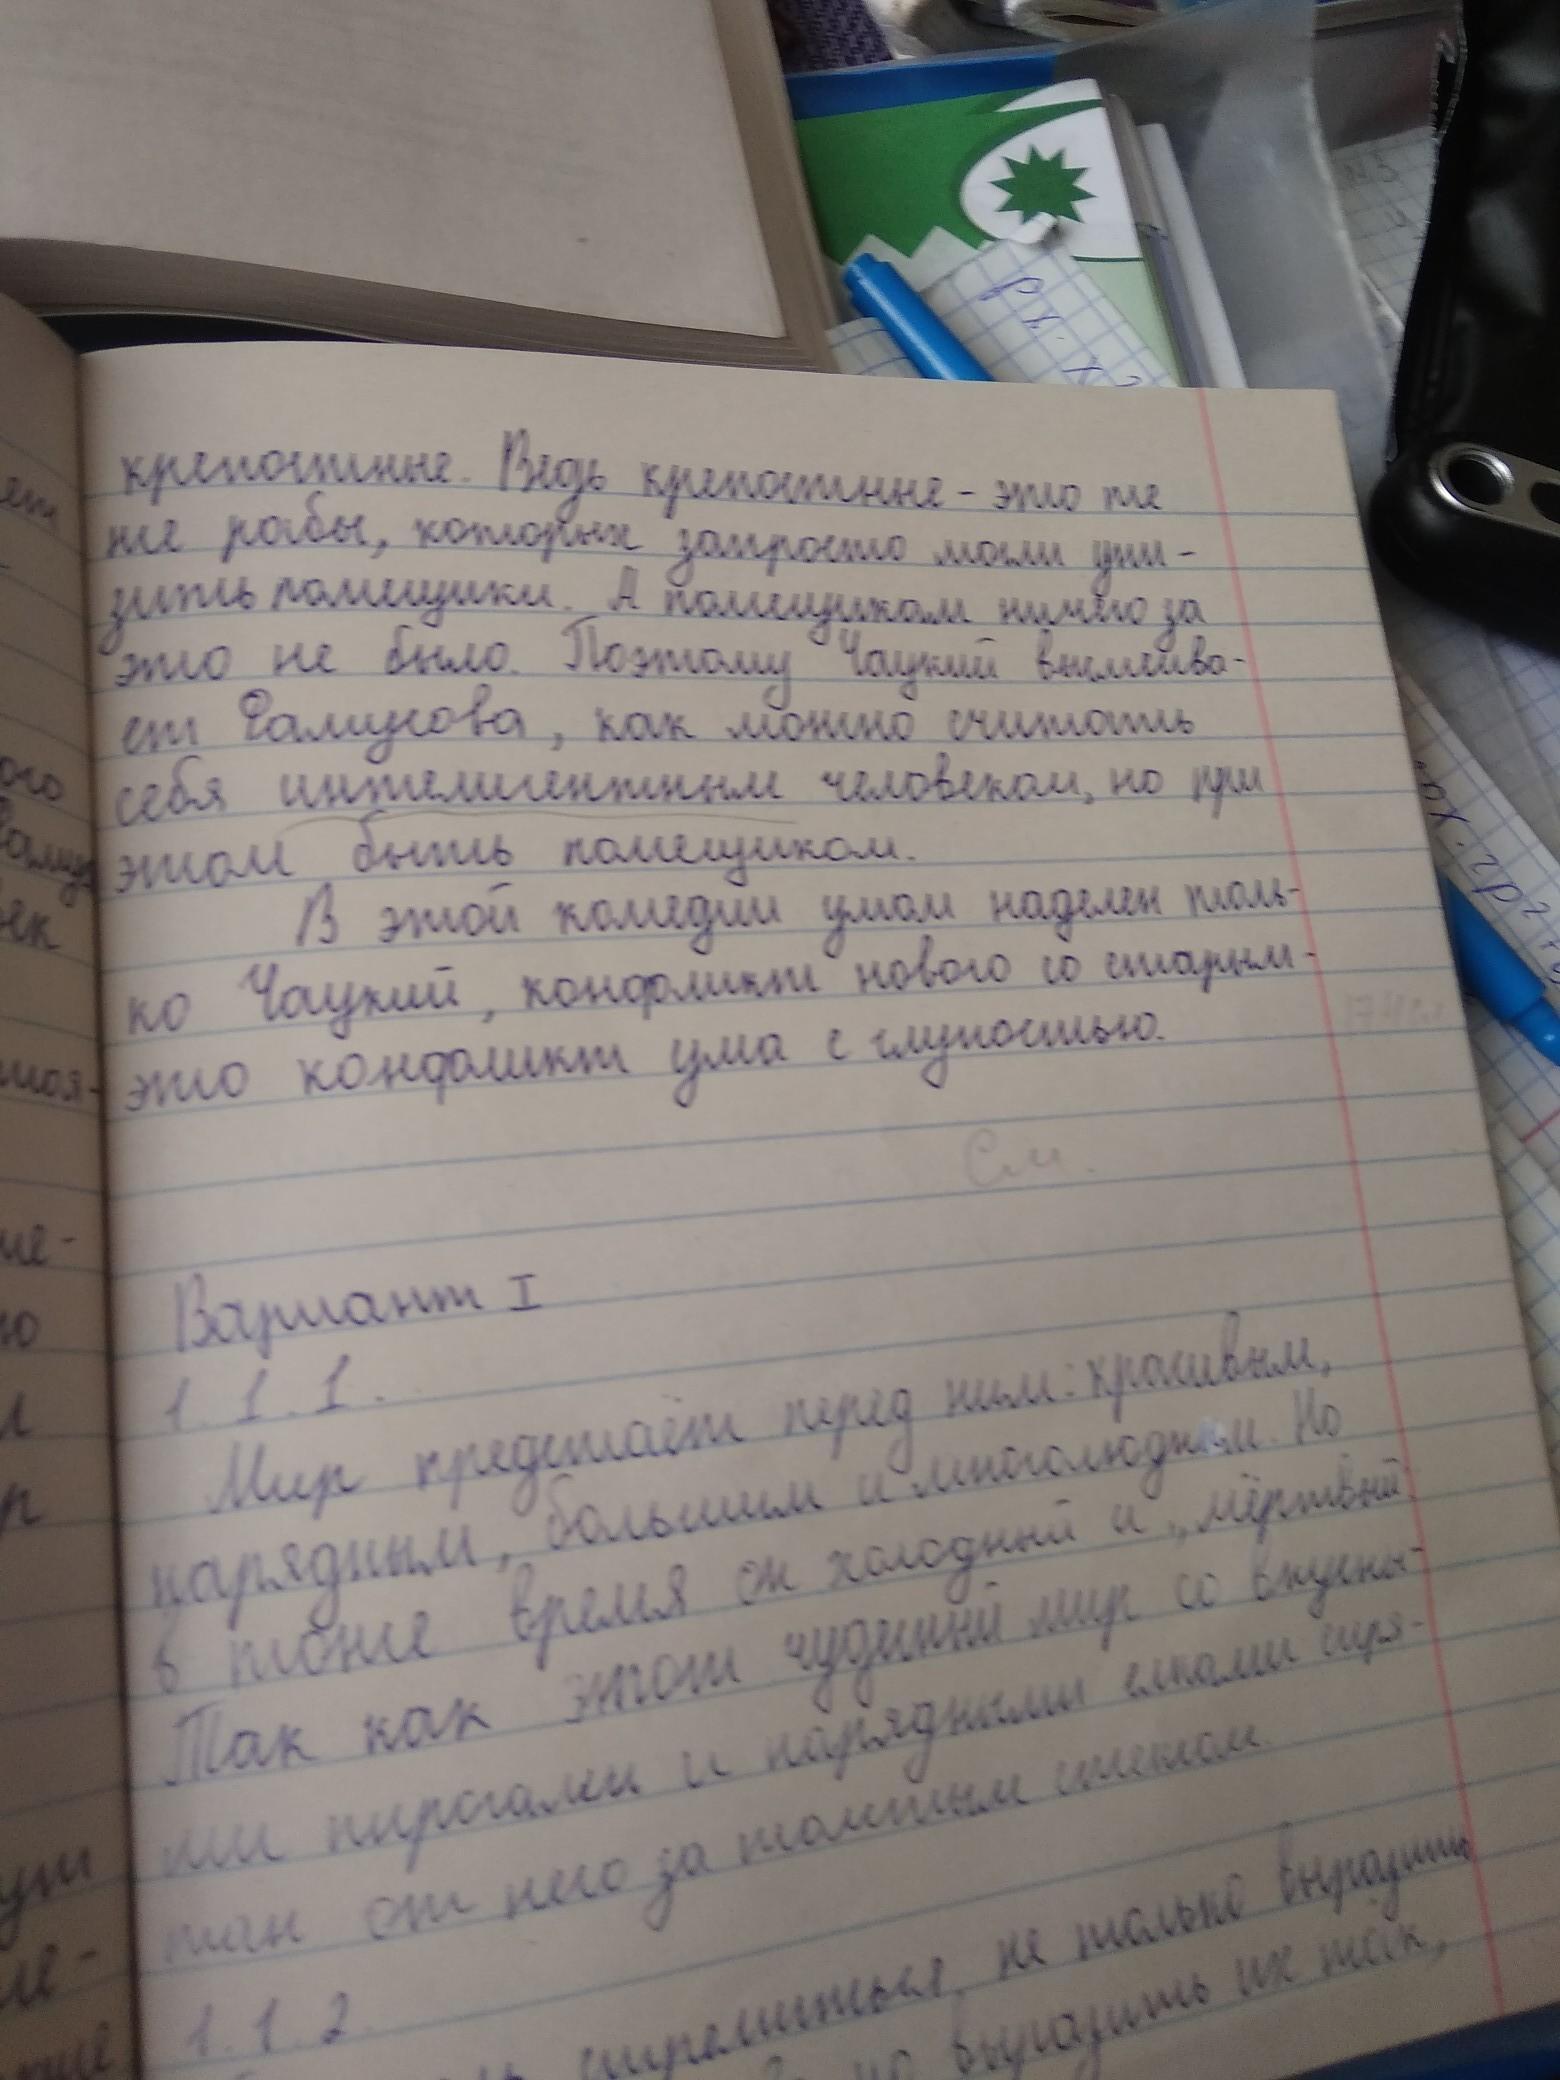 крепостные. Ведь крепостные - это те
же рабы, которых запросто могли уни-
зить помещики. А помещикам ничего за
это не было. Поэтому Чацкий высмеива-
ет Фамусова, как можно считать
себя интелигентным человеком, но при
этом быть помещиком.
В этой комедии умом наделен толь-
ко Чацкий, конфликт нового со старым-
это конфликт ума с глупостью.
См.
Вариант I
1.1.1.
Мир предстаёт перед ним: красивым,
нарядным, большим и многолюдным. Но
в тоже время он холодный и „мёртвый".
Так как этот чудный мир со вкусны-
ми пирогами и нарядными елками спря-
тан от него за толстым стеклом.
1.1.2.
стремиться не только выразить
но выразить их так,